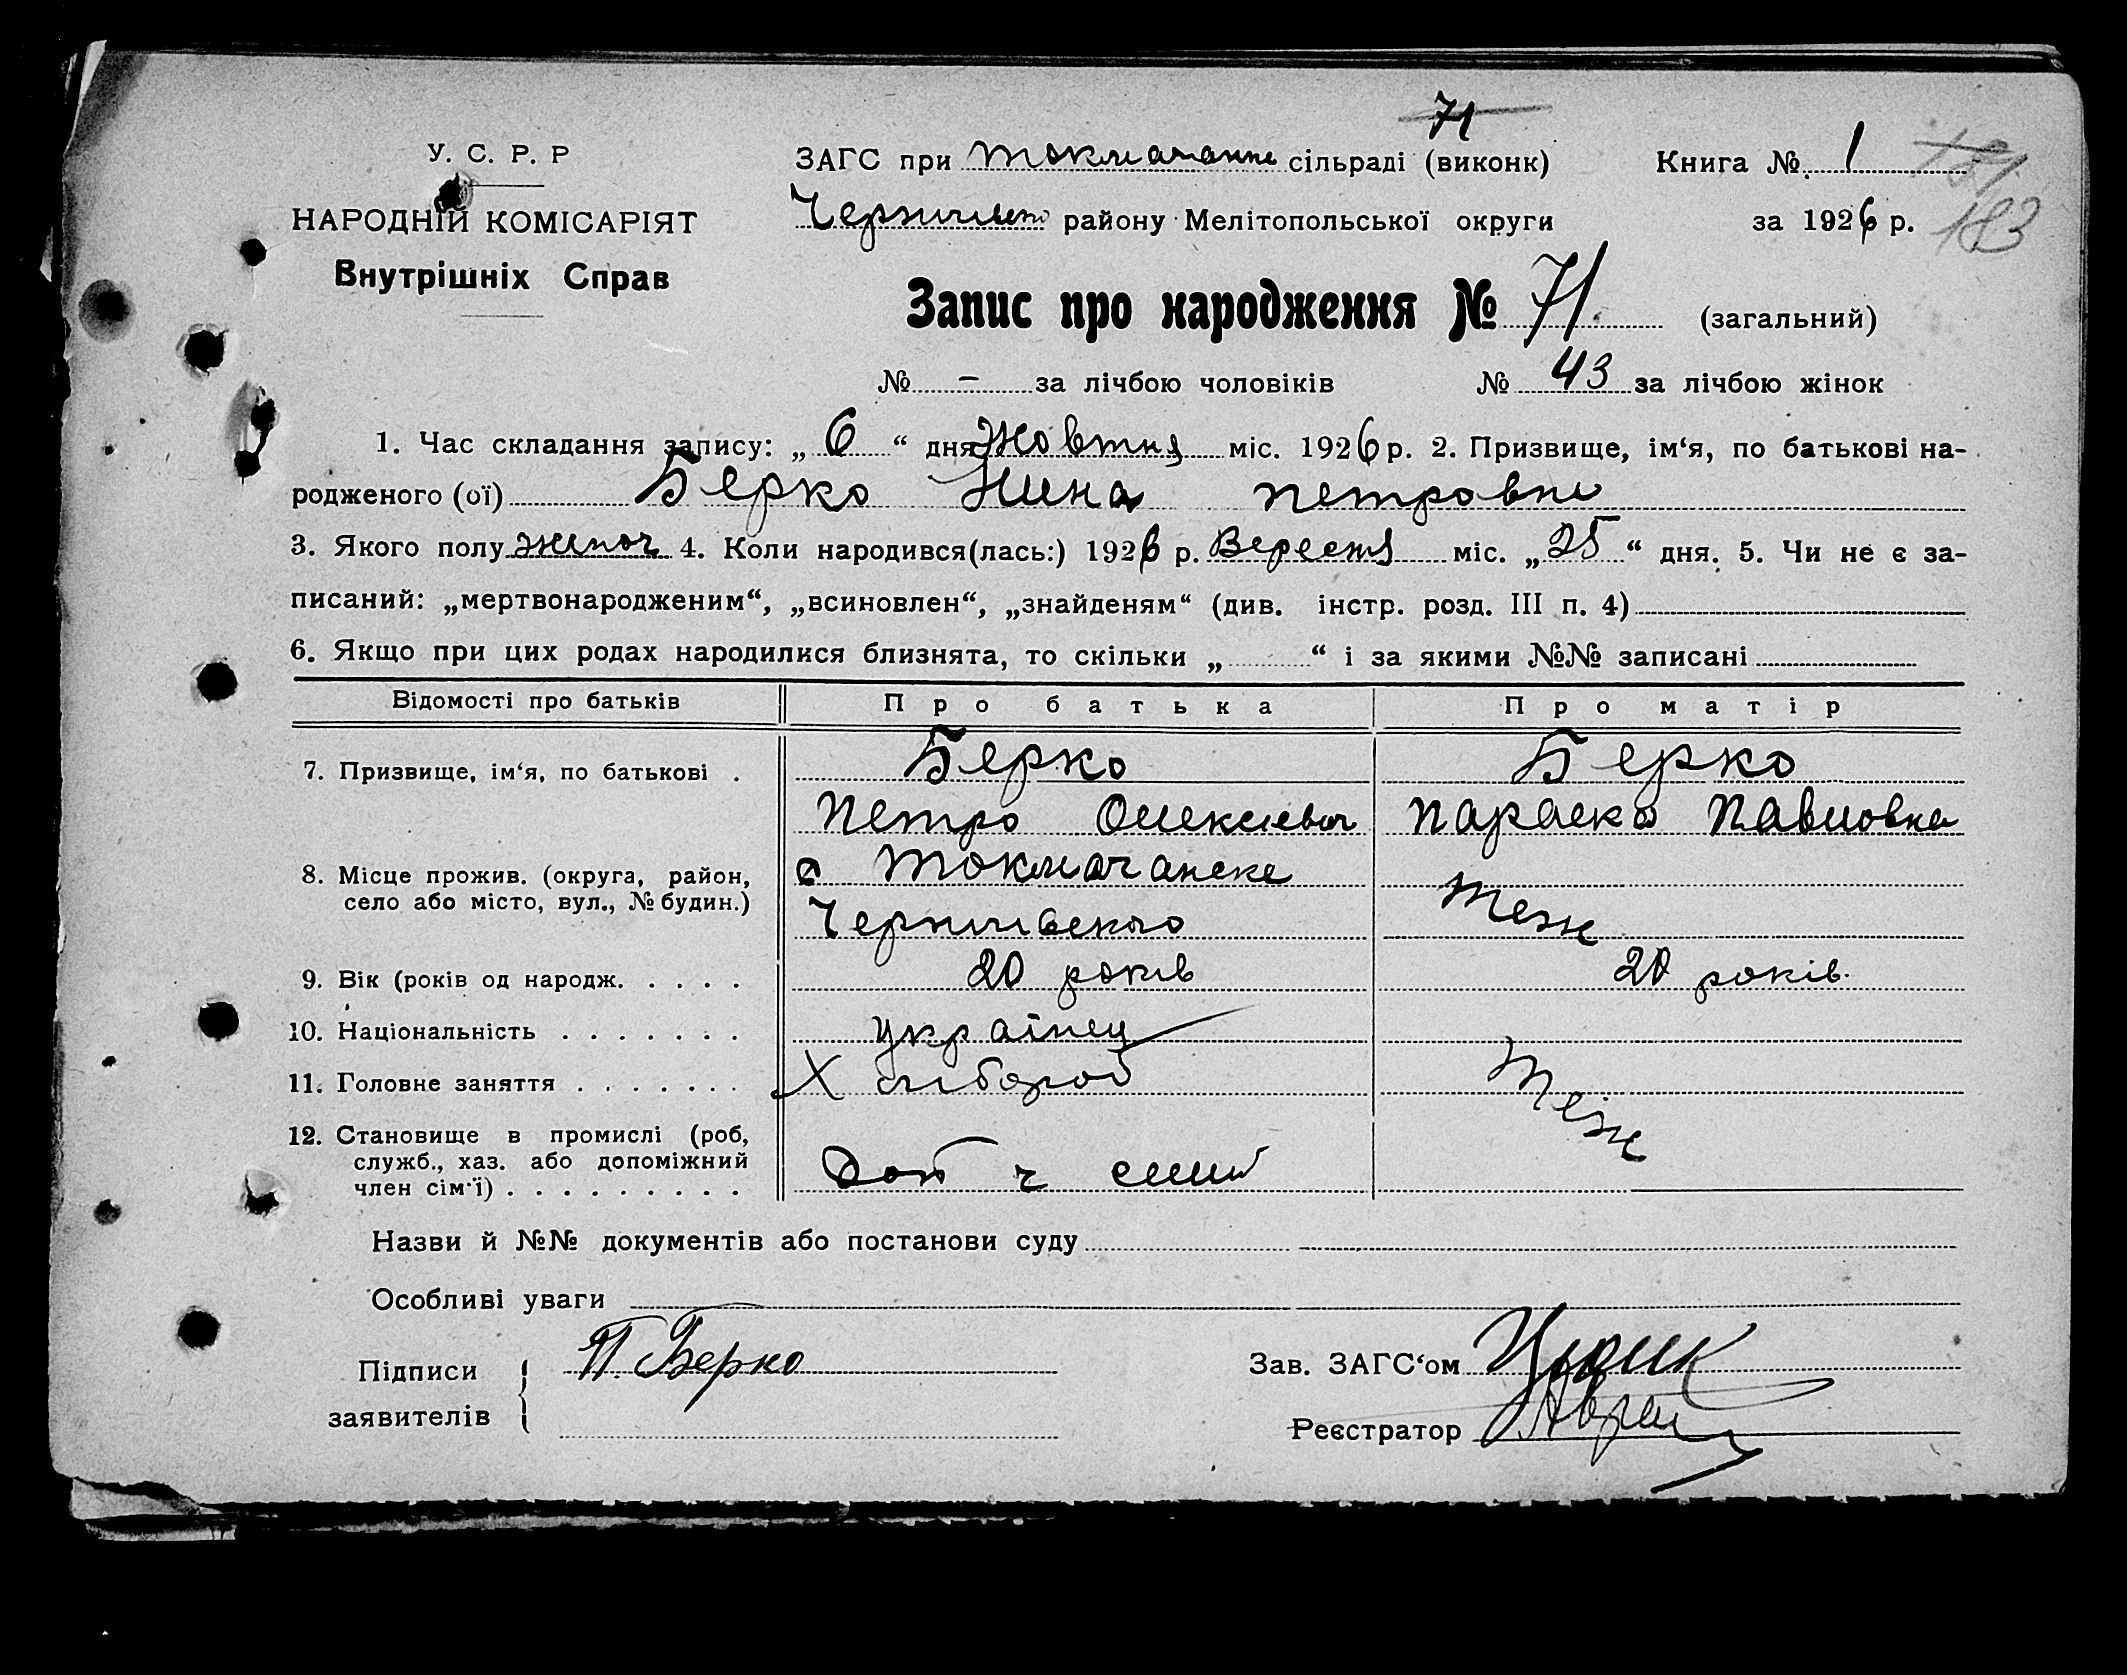 71
У. С. Р. Р ЗАГС при Токмачанске сільраді (виконк) Книга № 1
183
НАРОДНІЙ КОМІСАРІЯТ району Мелітопольської округи за 1926 р.
Внутрішніх Справ
Запис про народження № 71 (загальний)
№ - за лічбою чоловіків № 43 за лічбою жінок
1. Час складання запису: „ 6 “ дня Жовтня міс. 1926 р. 2. Призвище, ім‘я, по батькові на-
родженого (ої) Берко Нина Петровна
3. Якого полу жіноч 4. Коли народився(лась:) 1926 р. Вересня міс. „ 25 “ дня. 5. Чи не є за-
писаний: „мертвонародженим“, „всиновлен“, „знайденям“ (див. інстр. розд. III п. 4)
6. Якщо при цих родах народилися близнята, то скільки „ “ і за якими №№ записані
Відомості про батьків Про батька Про матір
7. Призвище, ім‘я, по батькові . Берко Берко
Петро Олексієвич Параска Павловна
8. Місце прожив. (округа, район, с Токмачанске
село або місто, вул., № будин.) Чернигівского Теж
9. Вік (років од народж. . . . . 20 років 20 років.
10. Національність . . . . . . . українец
11. Головне заняття . . . . . . . Хлібороб Теж
12. Становище в промислі (роб,
служб., хаз. або допоміжний
член сім‘ї) . . . . . . . . . Доп ч семї
Назви й №№ документів або постанови суду
Особливі уваги
Підписи П. Берко Зав. ЗАГС‘ом
заявителів Реєстратор